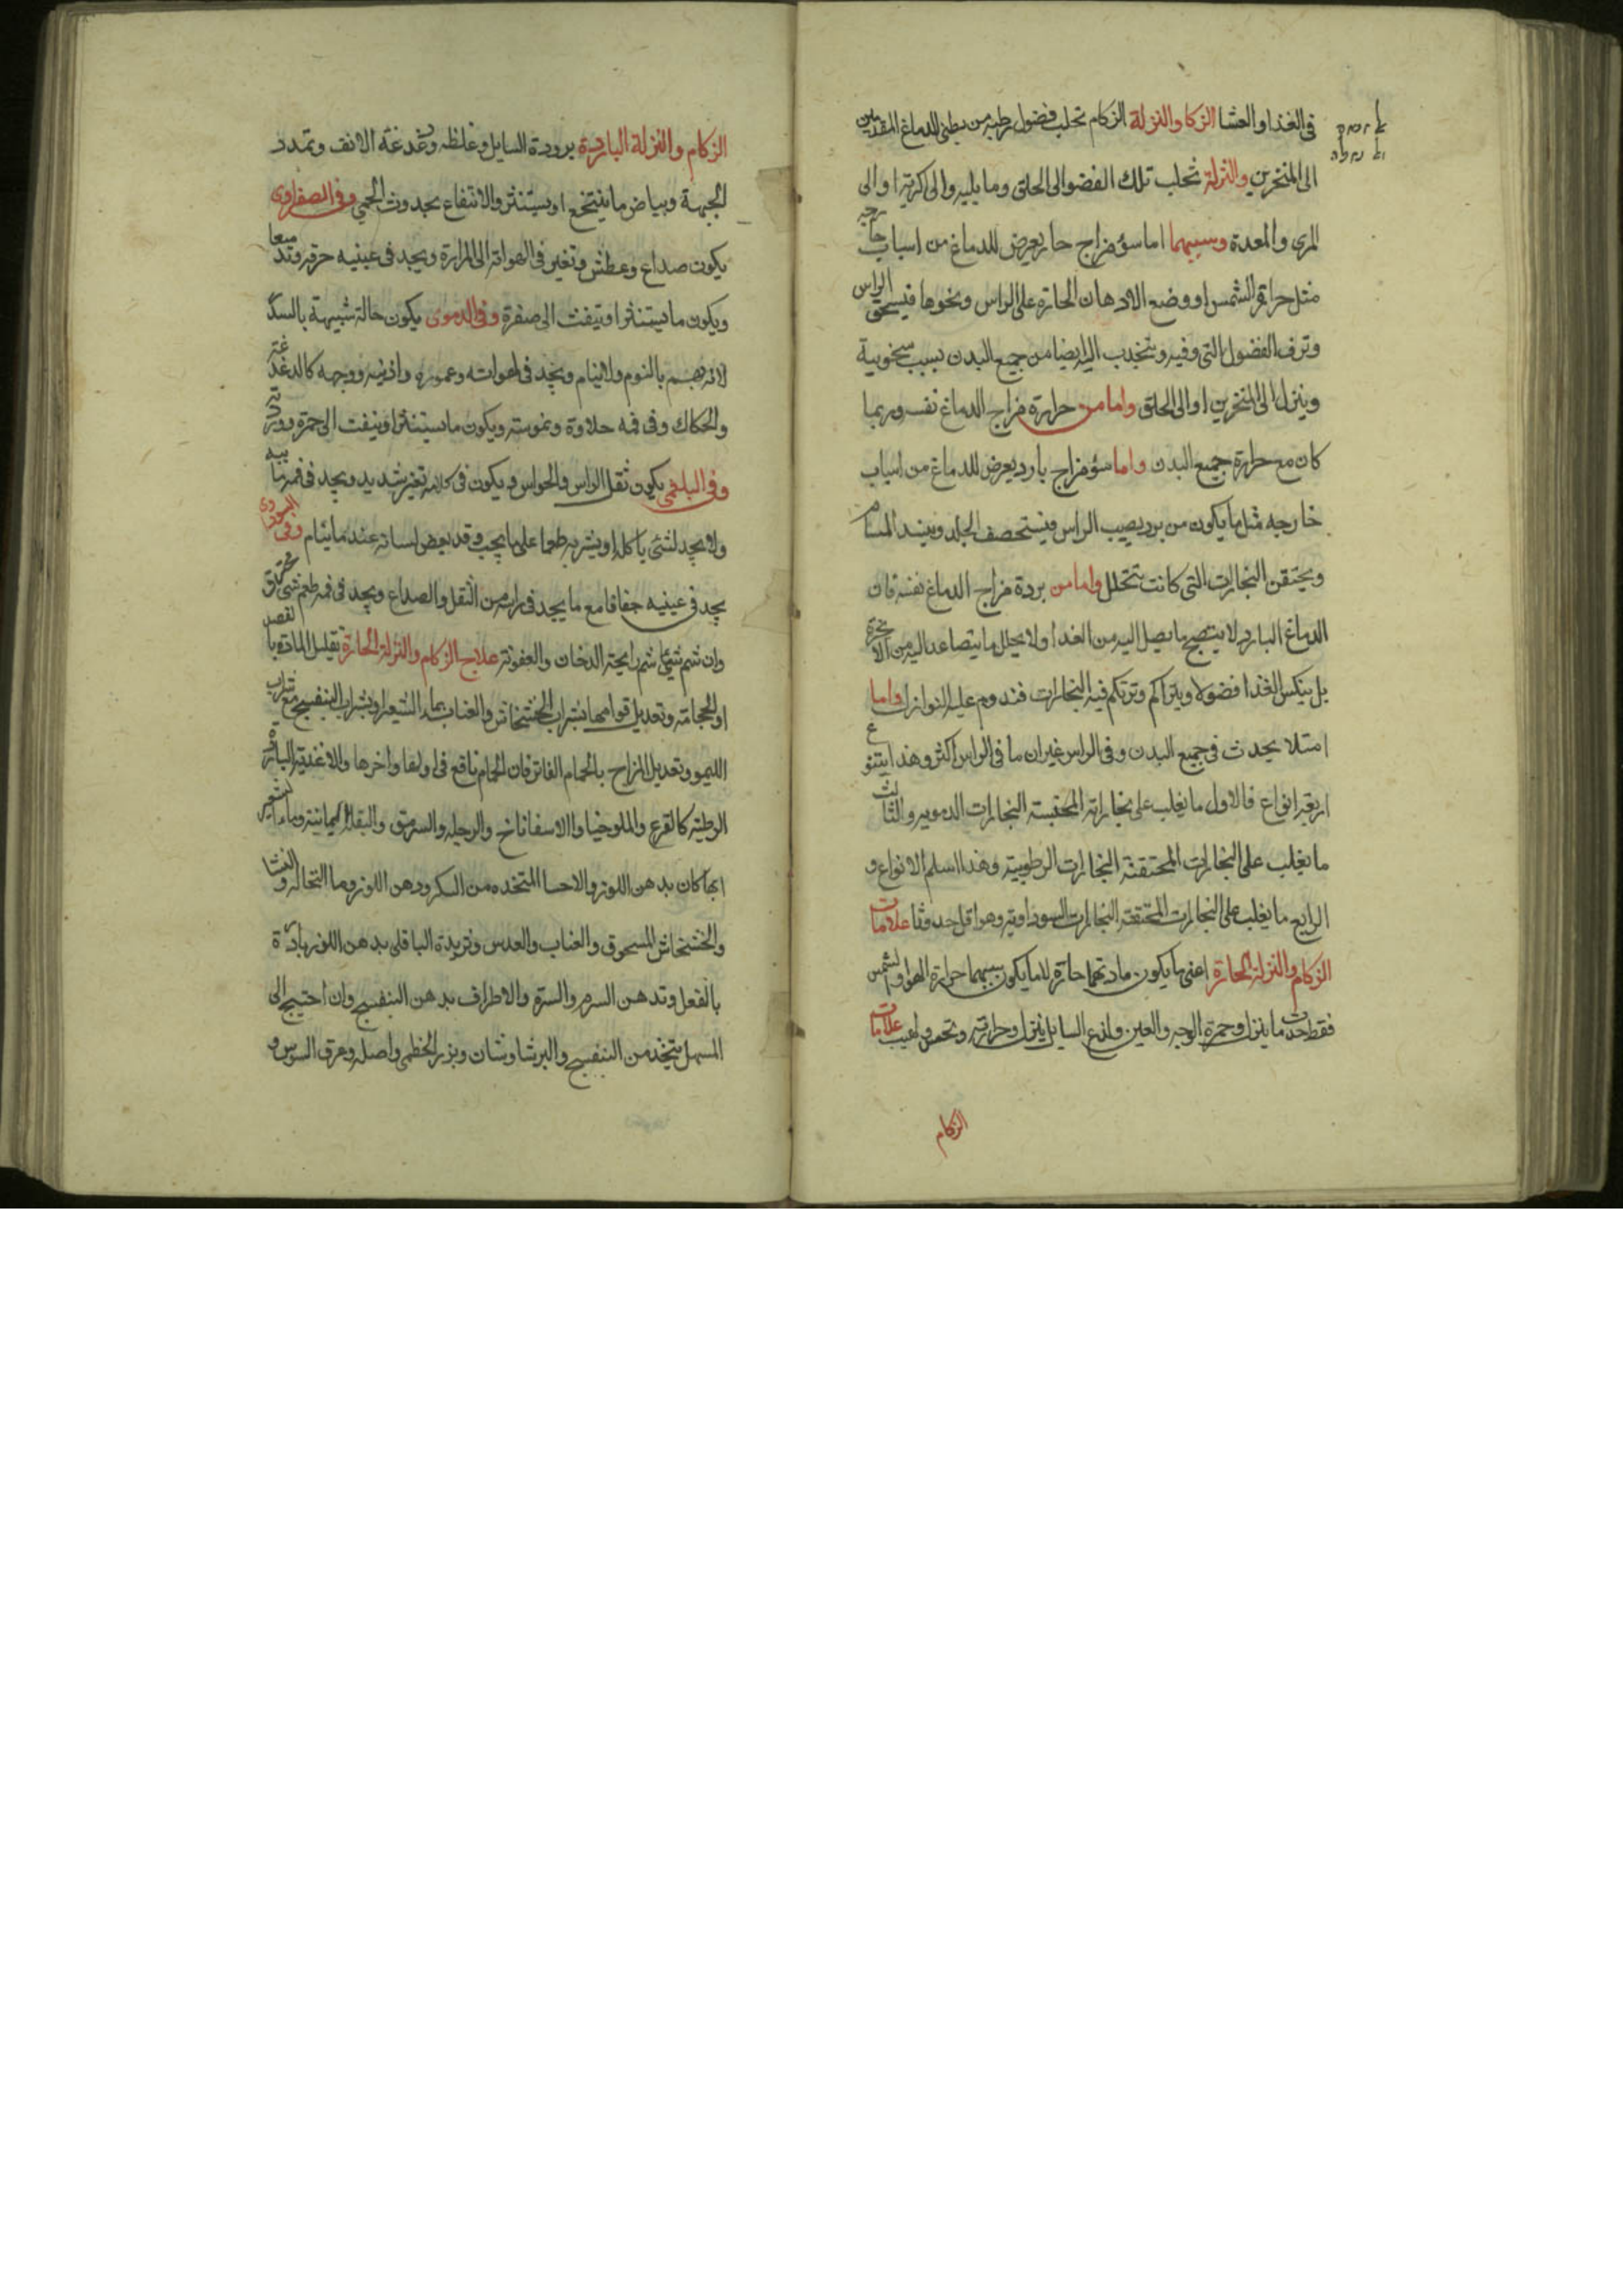 فى الغذا والعشا الزكا والنزلة الزكام تحلب فضول رطبه من بطنى الدماغ المقدمين
الى المنخرين والنزلة تحلب تلك الفضو الى الحلق وما يليه والى الرية او الى
المرى والمعدة وسببهما اما سؤ مزاج حار يعرض للدماغ من اسباب خارجيه
مثل حرارة الشمس او وضع الادهان الحارة على الراس ونحوها فيسخن الراس
وترف الفضول التى وفيه وتنجذب اليه ايضا من جميع البدن بسبب سخونية
وينزل الى المنخرين او الى الحلق واما من حرارة مزاج الدماغ نفسه وربما
كان مع حرارة جميع البدن واما سؤ مزاج بارد يعرض للدماغ من اسباب
خارجه مثل ما يكون من برد يصيب الراس فيستحصف الجلد وينسد المسام
ويحتقن البخارات التى كانت تتحلل واما من بردة مزاج الدماغ نفسه فان
الدماغ البارد لا ينضج ما يصل اليه من الغدا ولا يحلل ما يتصاعد اليه من الابخرة
بل ينكس الغدا فضولا ويتراكم وترتكم فيه البخارات فتدوم عليه النوازل واما
امتلا يحدث فى جميع البدن وفى الراس غير ان ما فى الراس اكثر وهذا يتنوع
اربعة انواع فالاول ما يغلب على بخاراته المحتبسة البخارات الدمويه والثالث
ما يغلب على البخارات المحتقنة البخارات الرطوبية وهذا اسلم الانواع و
الرابع ما يغلب على البخارات المحتقنة البخارات السوداوية وهو اقل حدوثا علامات
الزكام والنزلة الحارة اعنى ما يكون مادتهما حارة لا ما يكون سببهما حرارة الهوا والشمس
فقط حدت ما ينزل وحمرة الوجه والعين ولذع السايل ينزل وحرارته علامات
الزكام
الزكام والنزلة الباردة برودة السايل وغلظه ودغدغة الانف وتمدد
الجبهة وبياض ما يتنخع او يستنثر والانتفاع بحدوث الحمى وفى الصفراوى
يكون صداع وعطش وتغير فى لهواته الى المرارة ويجد فى عينيه حرقه وتدميعا
ويكون ما يستنثر او ينفث الى صفرة وفى الدموى يكون حالة شبيهة بالسكر
لانه يهم بالنوم ولا ينام ويجد فى لهواته وعموره واذنيه ووجهه كالدغدغة
والحكاك وفى فمه حلاوة ويكون ما يستنثر او ينفث الى حمرة
وفى البلغمى يكون ثقل الراس والحواس ويكون فى كلامه تغير شديد ويجد فى فمه
ولا يجد لشئ ياكله او يشربه طعما على ما يجب وقد يعض لسانه عند ما ينام وفى السوداوى
يجد فى عينيه جفافا مع ما يجد فى راسه من الثقل والصداع ويجد فى فمه طعم شئ محترق
وان شم شيئا شم رايحة الدخان والعفونة علاج الزكام والنزلة الحارة تقليل المادة بالفصد
او الحجامة وتعديل قوامها بشراب الخشخاش والعناب بماء الشعير او بشراب البنفسج مع شراب
الليمو وتعديل المزاج بالحمام الفاتر فان الحمام نافع فى اولها واخرها والاغذية الباردة
الرطبة كالقرع والملوخيا والاسفاناخ والرجله والسرمق والبقلة اليمانية وماء الشعير
ايها كان بدهن اللوز والاحسا المتخده من السكر ودهن اللوز وما النخاله والنشا
والخشخاش المسحوق والعناب والعدس وثريدة الباقلى بدهن اللوز باردة
بالفعل وتدهن السرم والسرة والاطراف بدهن البنفسج وان احتيج الى
المسهل يتخذ من البنفسج والبرشاوشان وبزر الخطمى واصله وعرق السوس و